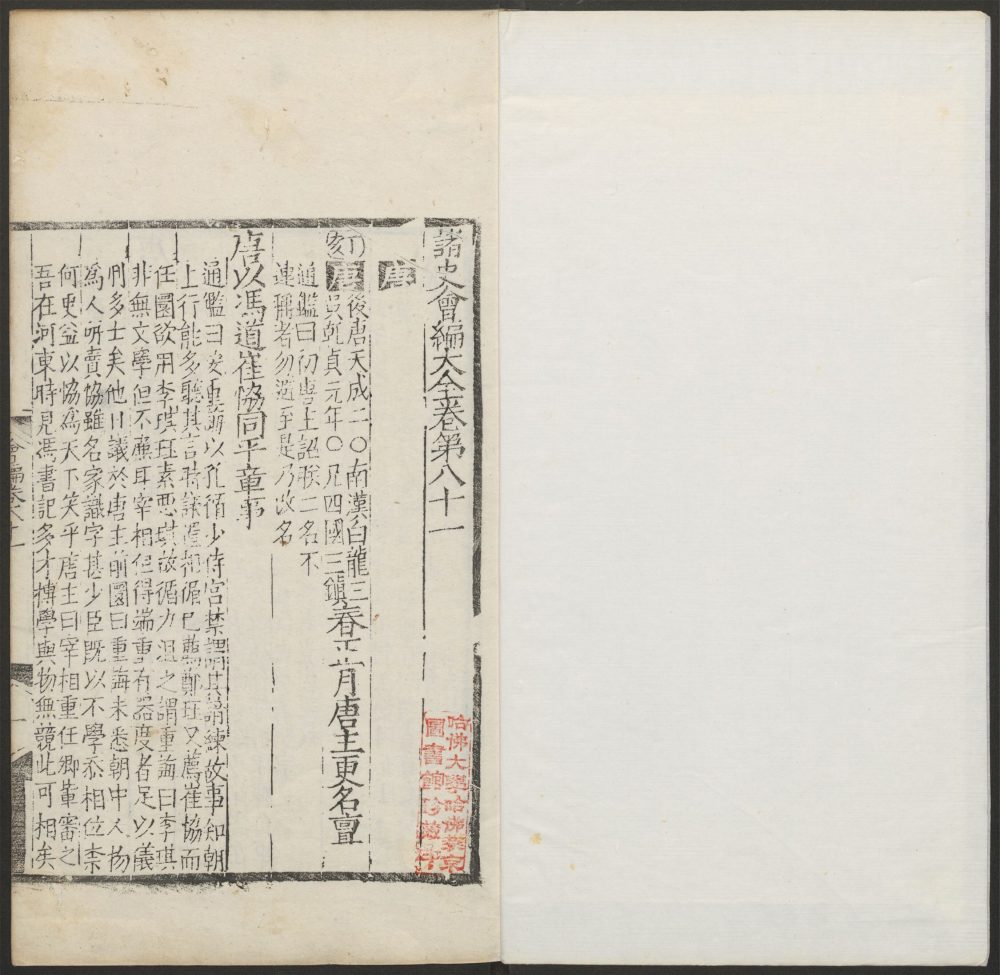 諸史會編大全卷第八十一
唐
丁亥
唐後唐天成二〇南漢白龍三
吳乾貞元年〇凡四國三鎮春正月唐主更名亶
通鑑曰初唐主詔朕二名不
連稱者勿避至是乃改名
唐以馮道崔恊同平章事
通鑑曰安重誨以孔循少侍宮禁謂其諳練故事知朝
上行能多聽其言時議置相循已薦鄭珏又薦崔恊而
任圜欲用李琪珏素惡琪故循力沮之謂重誨曰李琪
非無文學但不廉耳宰相但得端重有器度者足以儀
刑多士矣他日議於唐主前圜曰重誨未悉朝中人物
為人所賣協雖名家識字甚少臣既以不學忝相位柰
何更益以恊為天下笑乎唐主曰宰相重任卿輩審之
吾在河東時見馮書記多才博學與物無競此可相矣
會編卷八十一
一
哈佛大學哈佛燕京
圖書館珍藏印